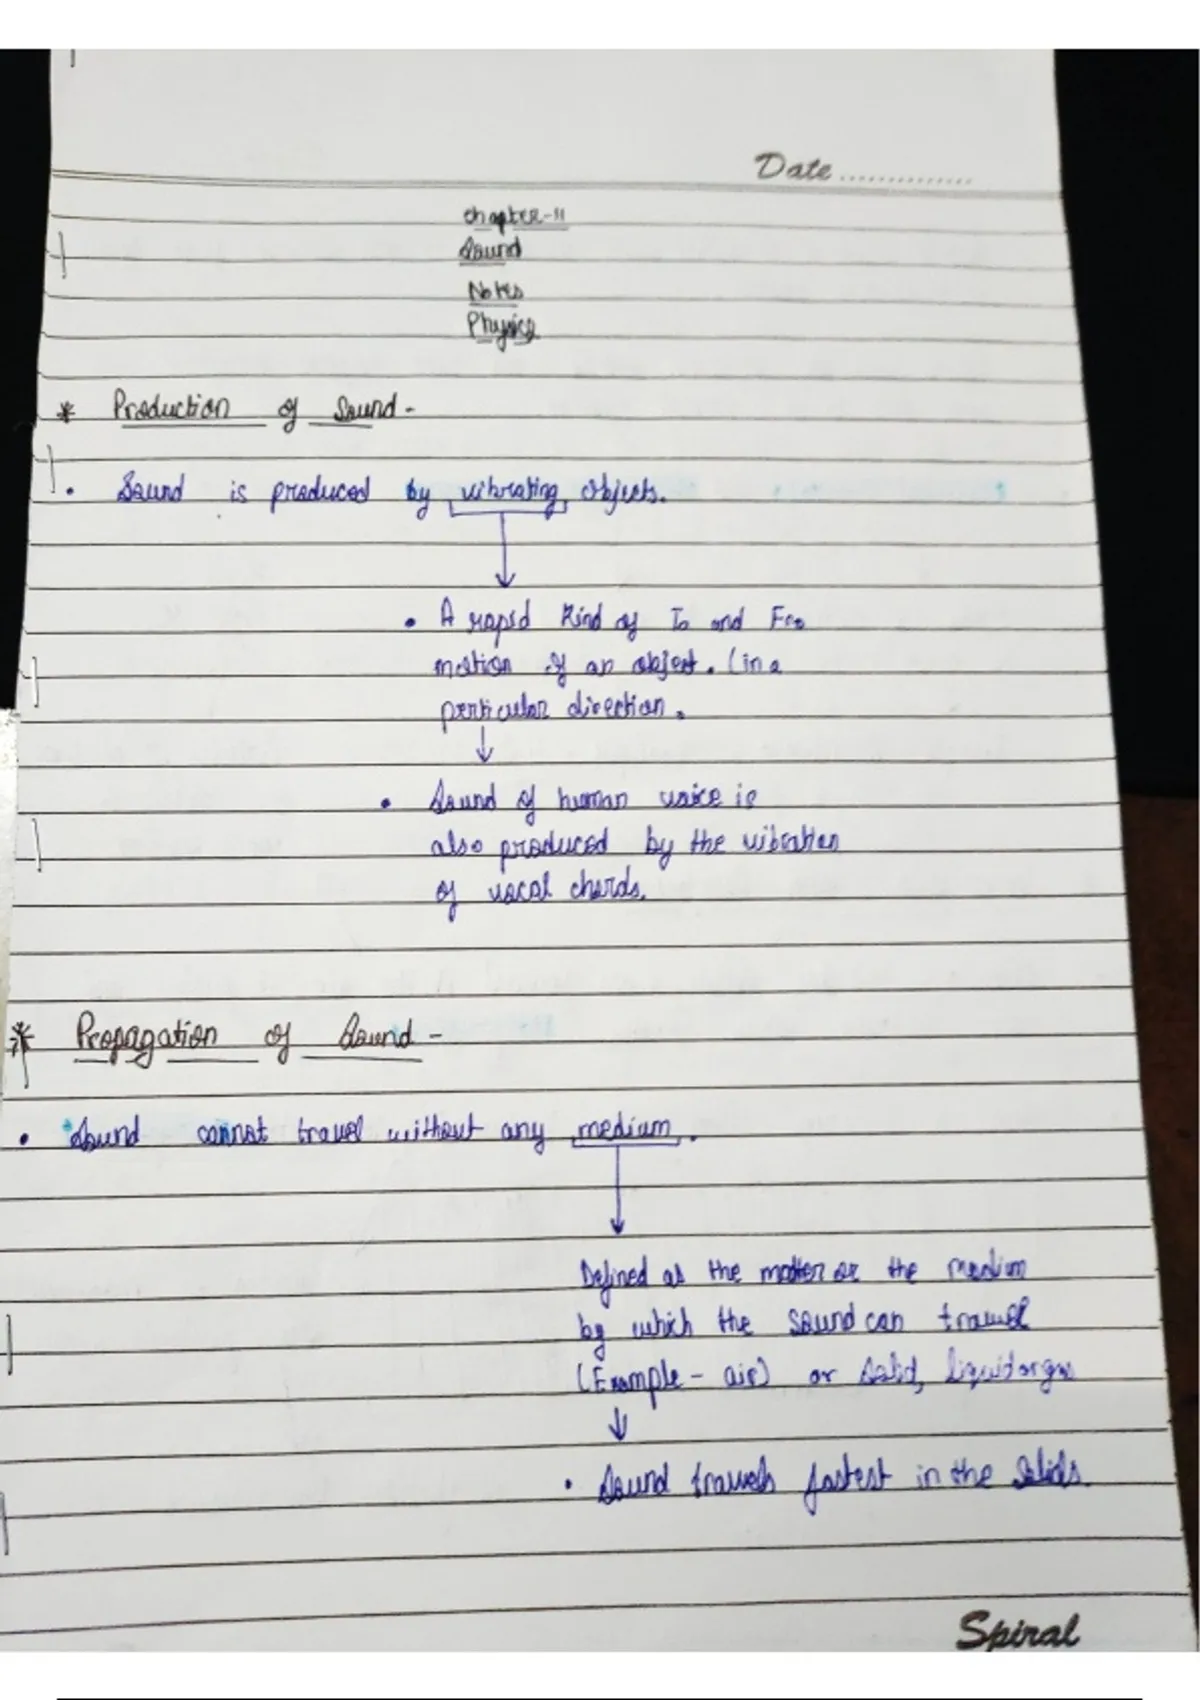 Date ..............
Chapter-11
Sound
Notes
Physics
* Production of Sound -
• Sound is produced by vibrating objects.
• A rapid Kind of To and Fro
motion of an object. (in a
perticular direction.
• Sound of human voice is
also produced by the vibration
of vocal chords.
* Propagation of Sound -
• Sound cannot travel without any medium.
Defined as the matter or the medium
by which the sound can travel
(Example - air) or solid, liquid or gas
• Sound travels fastest in the solids.
Spiral